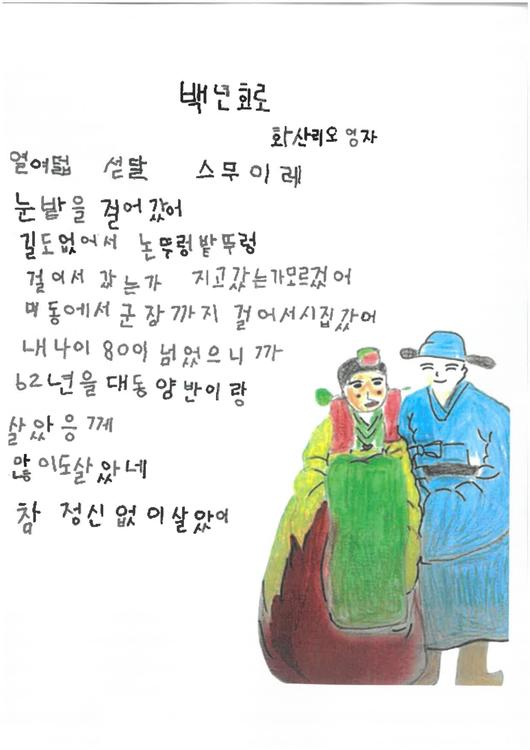 백년회로
화산리오영자
열여덟 섣달 스무이레
눈밭을 걸어갔어
길도없어서 논뚜렁밭뚜렁
걸어서 갔는가 지고갔는가모르겠어
며동에서군장까지 걸어서시집갔어
내나이80이넘었으니까
62년을대동양반이랑
살았응께
많이도살았네
참 정신없이살았어